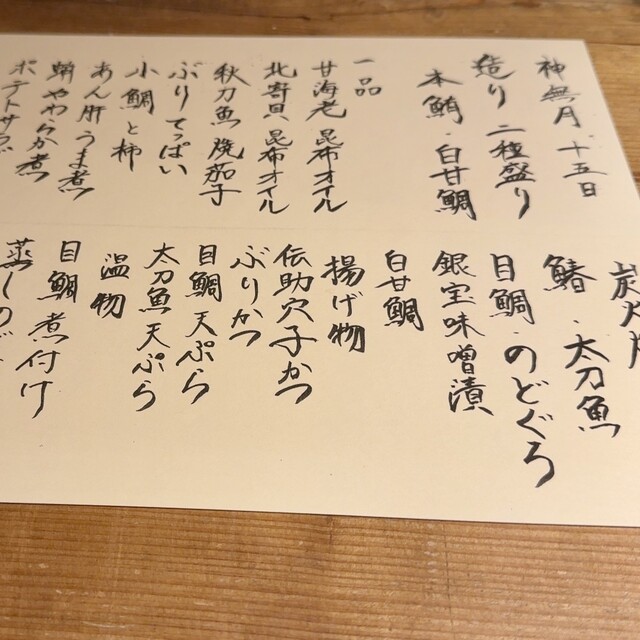 神無月、十五日
造り 二種盛り
本鮪・白甘鯛
一品
甘海老 昆布オイル
北寄貝 昆布オイル
秋刀魚 焼茄子
ぶりてっぱい
小鯛と柿
あん肝うま煮
蛸やわらか煮
ポテトサラダ
鰆・太刀魚
目鯛・のどぐろ
銀宝味噌漬
白甘鯛
揚げ物
伝助穴子かつ
ぶりかつ
目鯛天ぷら
太刀魚天ぷら
温物
目鯛煮付け
蒸しのど